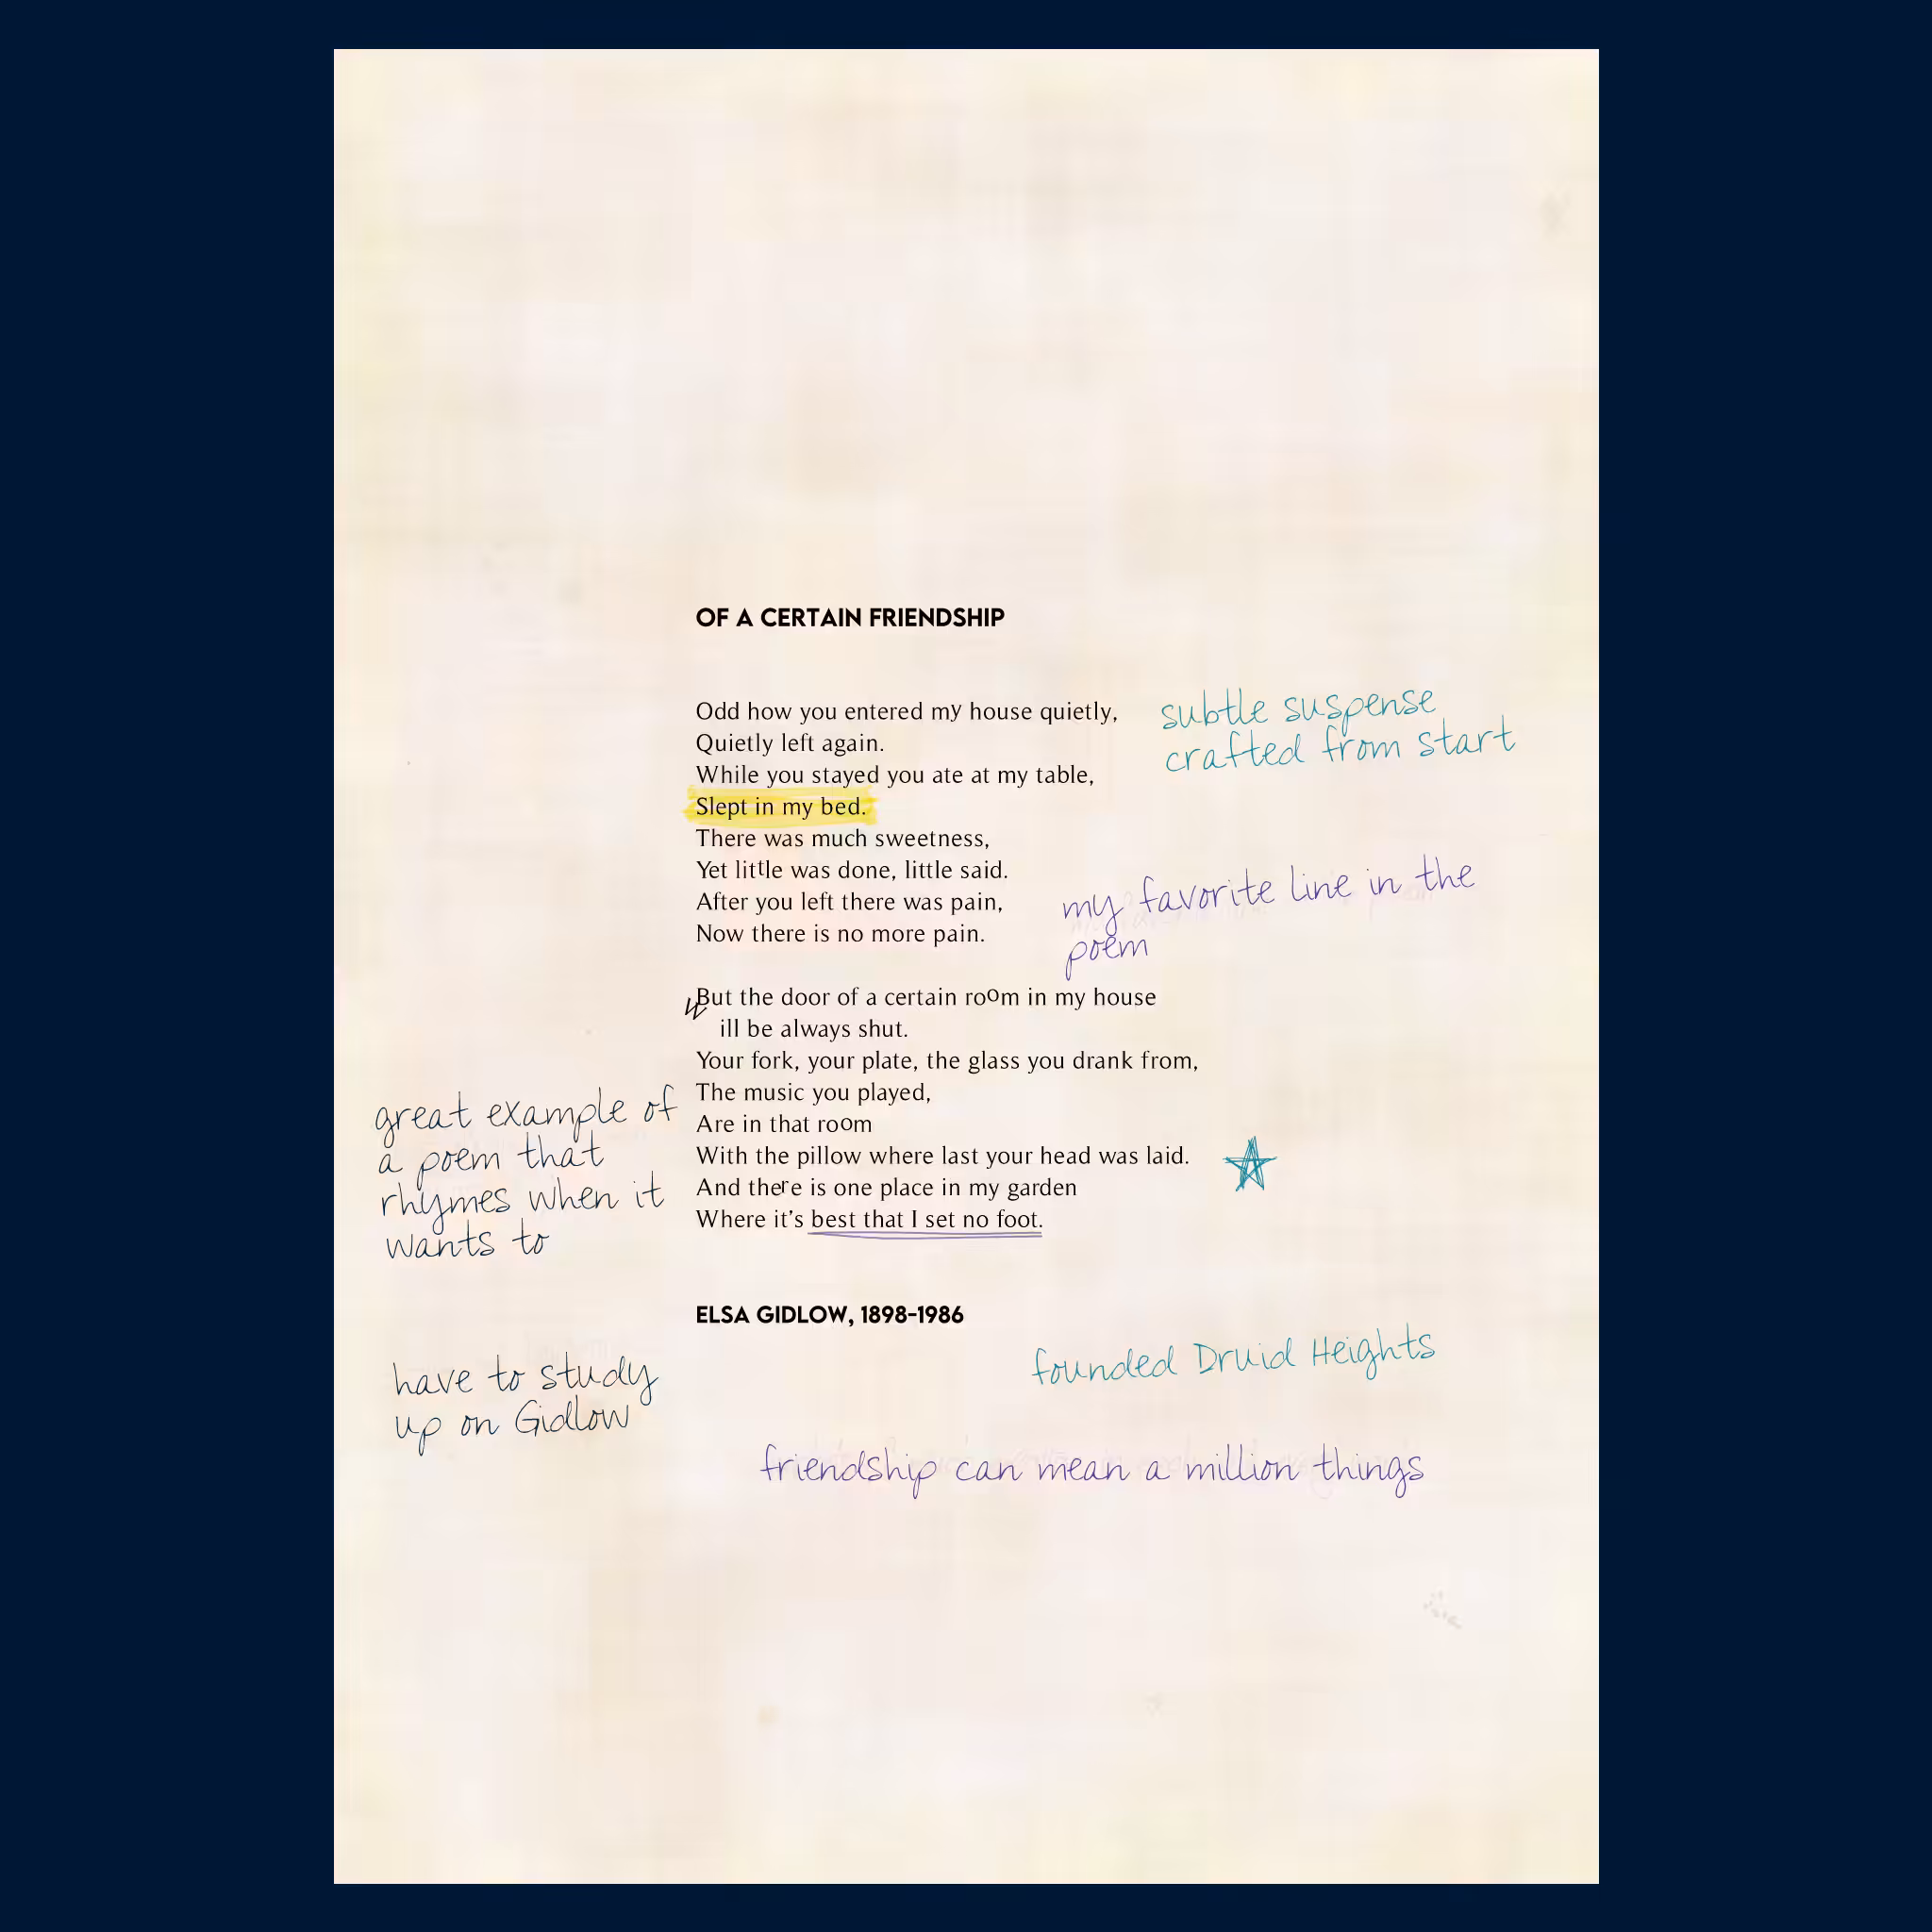 OF A CERTAIN FRIENDSHIP
Odd how you entered my house quietly,
Quietly left again.
While you stayed you ate at my table,
Slept in my bed.
There was much sweetness,
Yet little was done, little said.
After you left there was pain,
Now there is no more pain.
subtle suspense
crafted from start
my favorite line in the
poem
But the door of a certain room in my house
Will be always shut.
Your fork, your plate, the glass you drank from,
The music you played,
Are in that room
With the pillow where last your head was laid.
And there is one place in my garden
Where it's best that I set no foot.
great example of
a poem that
rhymes when it
wants to
ELSA GIDLOW, 1898-1986
founded Druid Heights
have to study
up on Gidlow
friendship can mean a million things